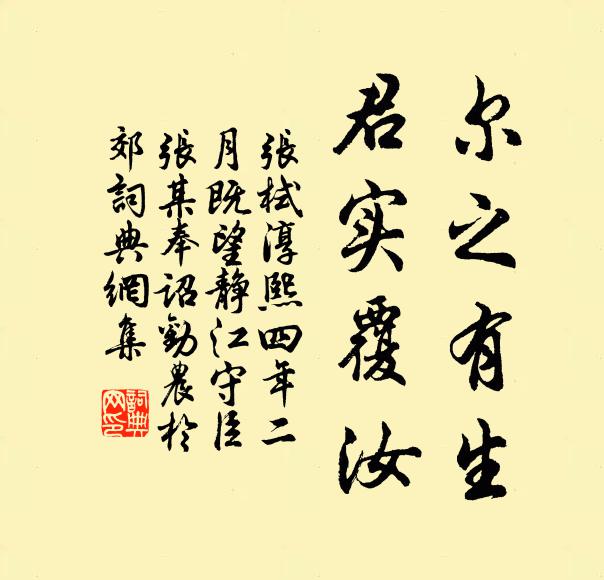 尔之有生
君实覆汝
張栻淳熙四年二
月既望靜江守臣
張某奉詔勸農於
郊詞典網集
詞典
网印